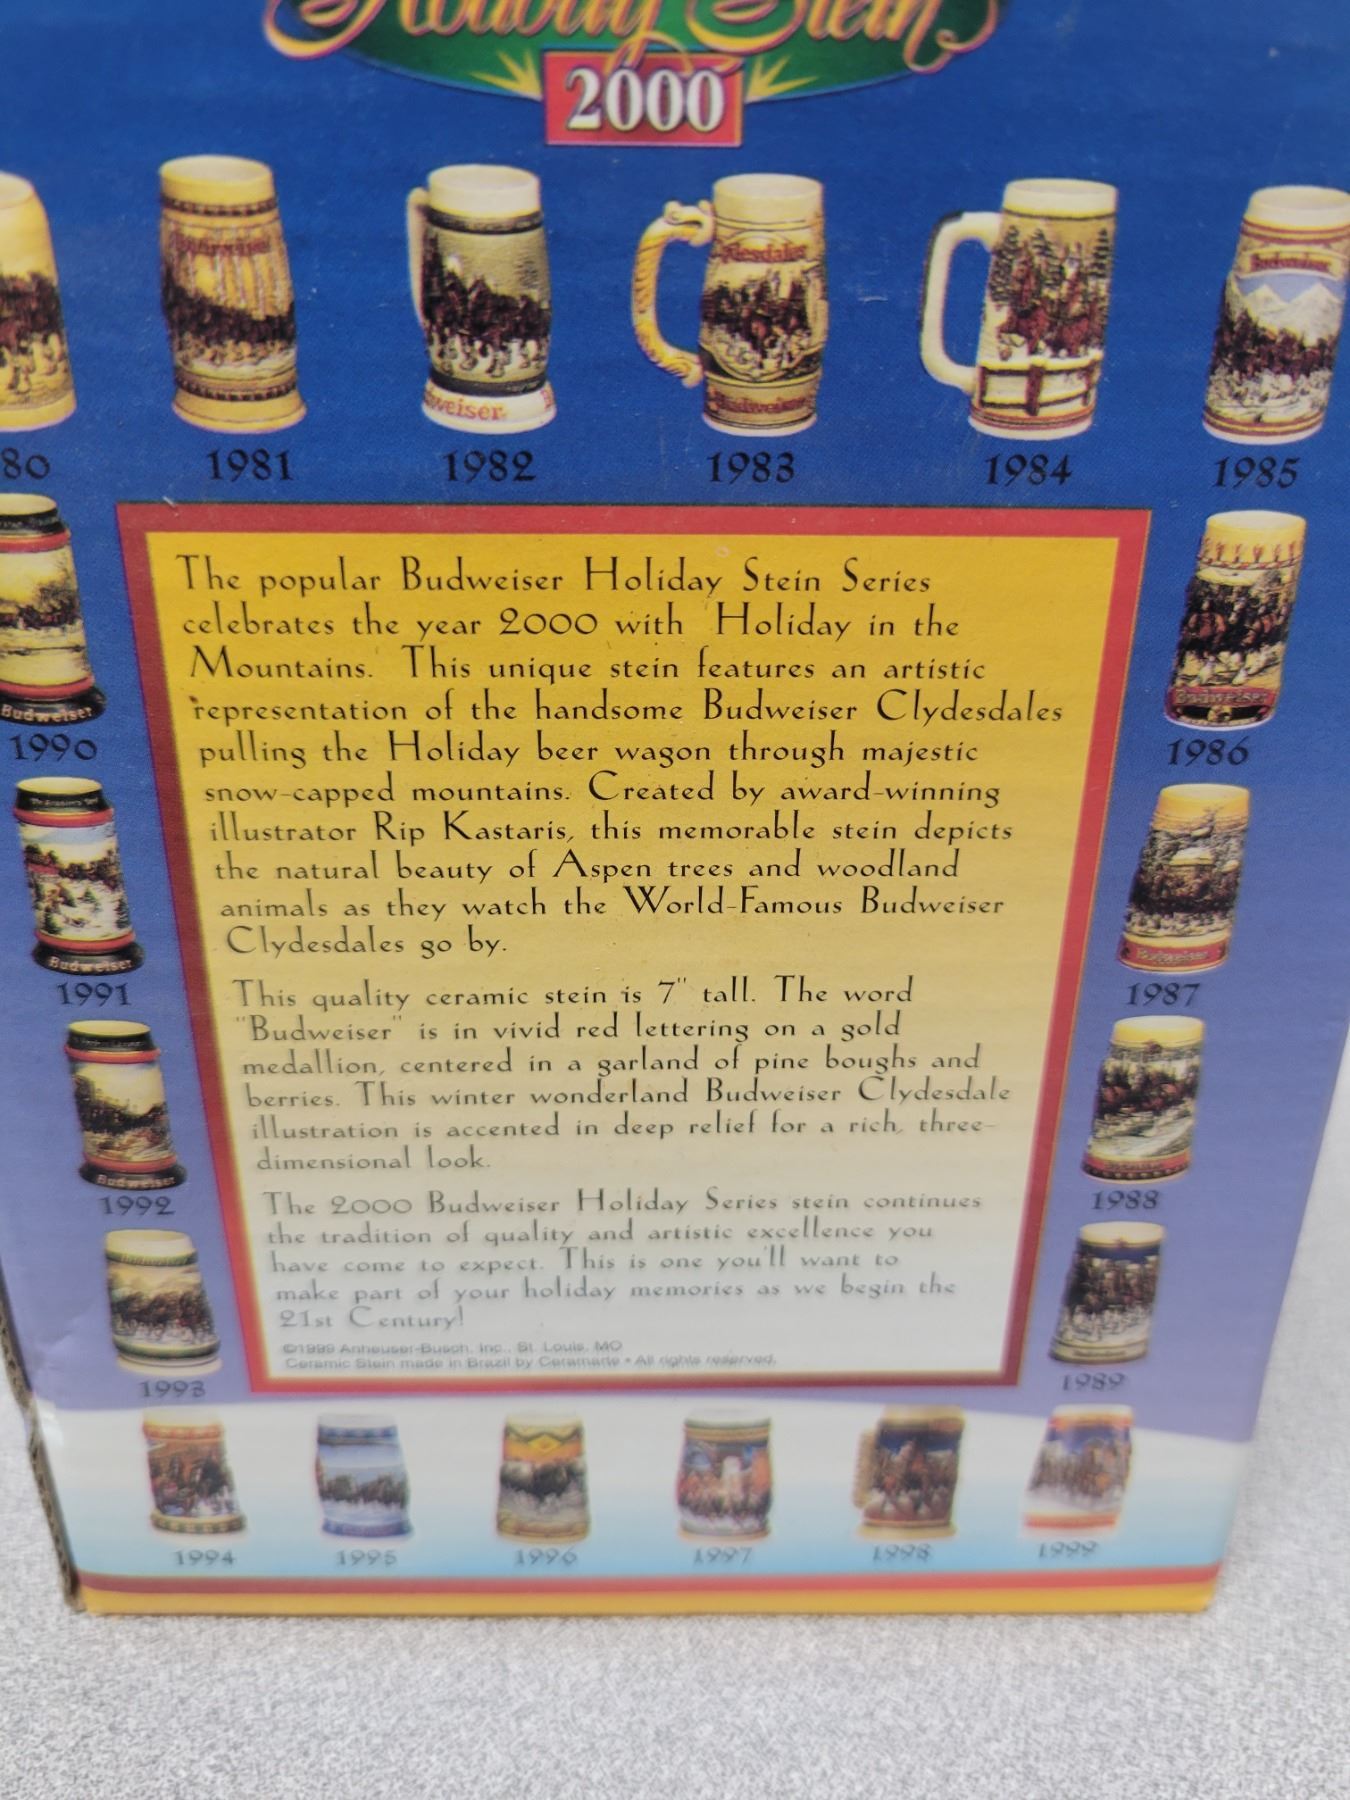 Holiday Stein
2000
Budweiser
Clydesdales
Budweiser
weiser B
Budweiser
80 1981 1982 1983 1984 1985
The popular Budweiser Holiday Stein Series
celebrates the year 2000 with "Holiday in the
Mountains." This unique stein features an artistic
representation of the handsome Budweiser Clydesdales
pulling the Holiday beer wagon through majestic
snow-capped mountains. Created by award-winning
illustrator Rip Kastaris, this memorable stein depicts
the natural beauty of Aspen trees and woodland
animals as they watch the World-Famous Budweiser
Clydesdales go by.
This quality ceramic stein is 7" tall. The word
"Budweiser" is in vivid red lettering on a gold
medallion, centered in a garland of pine boughs and
berries. This winter wonderland Budweiser Clydesdale
illustration is accented in deep relief for a rich, three-
dimensional look.
The 2000 Budweiser Holiday Series stein continues
the tradition of quality and artistic excellence you
have come to expect. This is one you'll want to
make part of your holiday memories as we begin the
21st Century!
©1999 Anheuser-Busch, Inc., St. Louis, MO
Ceramic Stein made in Brazil by Ceramarte • All rights reserved.
Budweiser
1990
Budweiser
1991
Budweiser
1992
1993
Budweiser
1986
Budweiser
1987
1988
1989
1994 1995 1996 1997 1998 1999